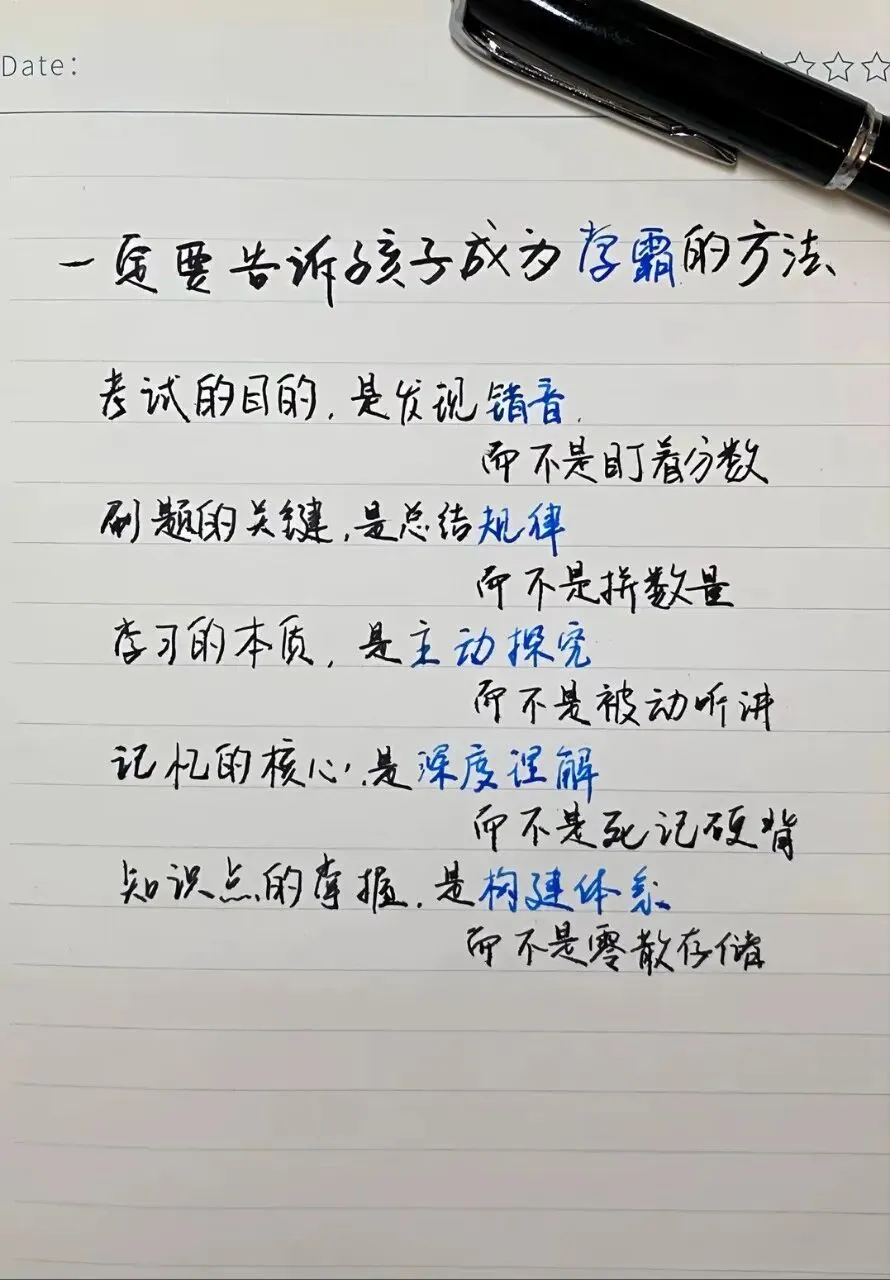 Date:
一定要告诉孩子成为学霸的方法
考试的目的，是发现错音，
而不是盯着分数
刷题的关键，是总结规律
而不是拼数量
学习的本质，是主动探究
而不是被动听讲
记忆的核心，是深度理解
而不是死记硬背
知识点的掌握，是构建体系
而不是零散存储